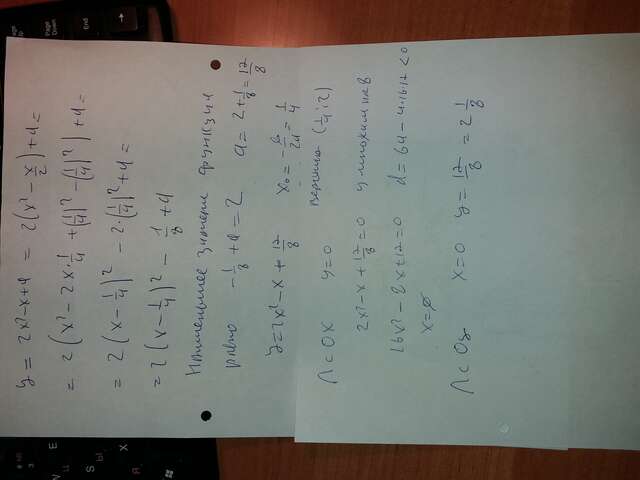 y = 2x² - x + a = 2(x² - x/2) + a =
= 2(x² - 2x·1/4 + (1/4)² - (1/4)²) + a =
= 2(x - 1/4)² - 2·(1/4)² + a =
= 2(x - 1/4)² - 1/8 + a
Наименьшее значение функции
равно -1/8 + a = 2 a = 2 + 1/8 = 17/8
y = 2x² - x + 17/8 x₀ = -b/2a = 1/4
вершина (1/4; 2)
Λ с OX y = 0
2x² - x + 17/8 = 0 умножим на 8
16x² - 8x + 17 = 0 d = 64 - 4·16·17 < 0
x = ∅
Λ с Oy x = 0 y = 17/8 = 2 1/8